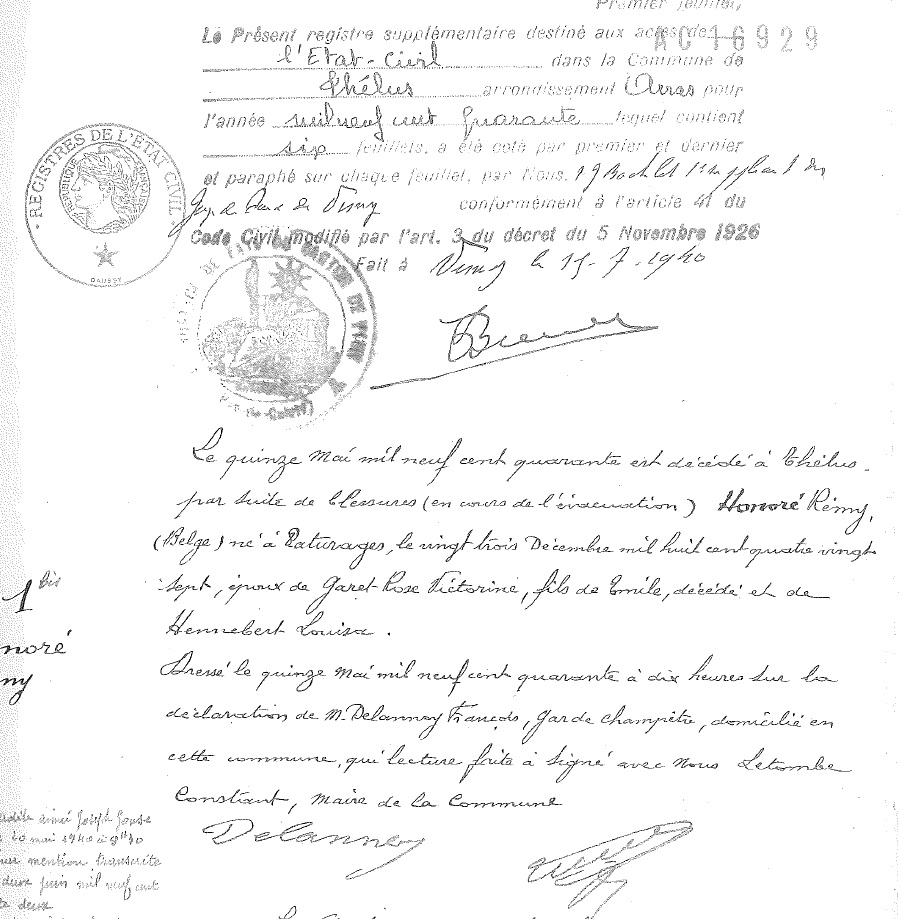 Premier feuillet,
Le Présent registre supplémentaire destiné aux actes de
AC 16929
l'Etat-Civil dans la Commune de
Thélus arrondissement Arras pour
l'année mil neuf cent quarante lequel contient
six feuillets, a été coté par premier et dernier
et paraphé sur chaque feuillet, par Nous,
de Vimy conformément à l'article 41 du
Code Civil modifié par l'art. 3 du décret du 5 Novembre 1926
Fait à Vimy le 15-7-1940
REGISTRES DE L'ETAT CIVIL
REPUBLIQUE FRANÇAISE
DAUSSY
CANTON DE VIMY
Le quinze Mai mil neuf cent quarante est décédé à Thélus.
par suite de blessures (en cours de l'évacuation) Honoré Rémy,
(Belge) né à Paturages, le vingt trois Décembre mil huit cent quatre vingt
sept, époux de Garet Rose Victorine, fils de Emile, décédé et de
Hennebert Louisa.
1 bis
noré
my
Dressé le quinze Mai mil neuf cent quarante à dix heures sur la
déclaration de M. Delannoy François, Garde champêtre, domicilié en
cette commune, qui lecture faite à signé avec Nous Letombe
Constant, Maire de la Commune
Delannoy
Joseph
mai 1940 à
mention transcrite
deux juin mil neuf cent
deux